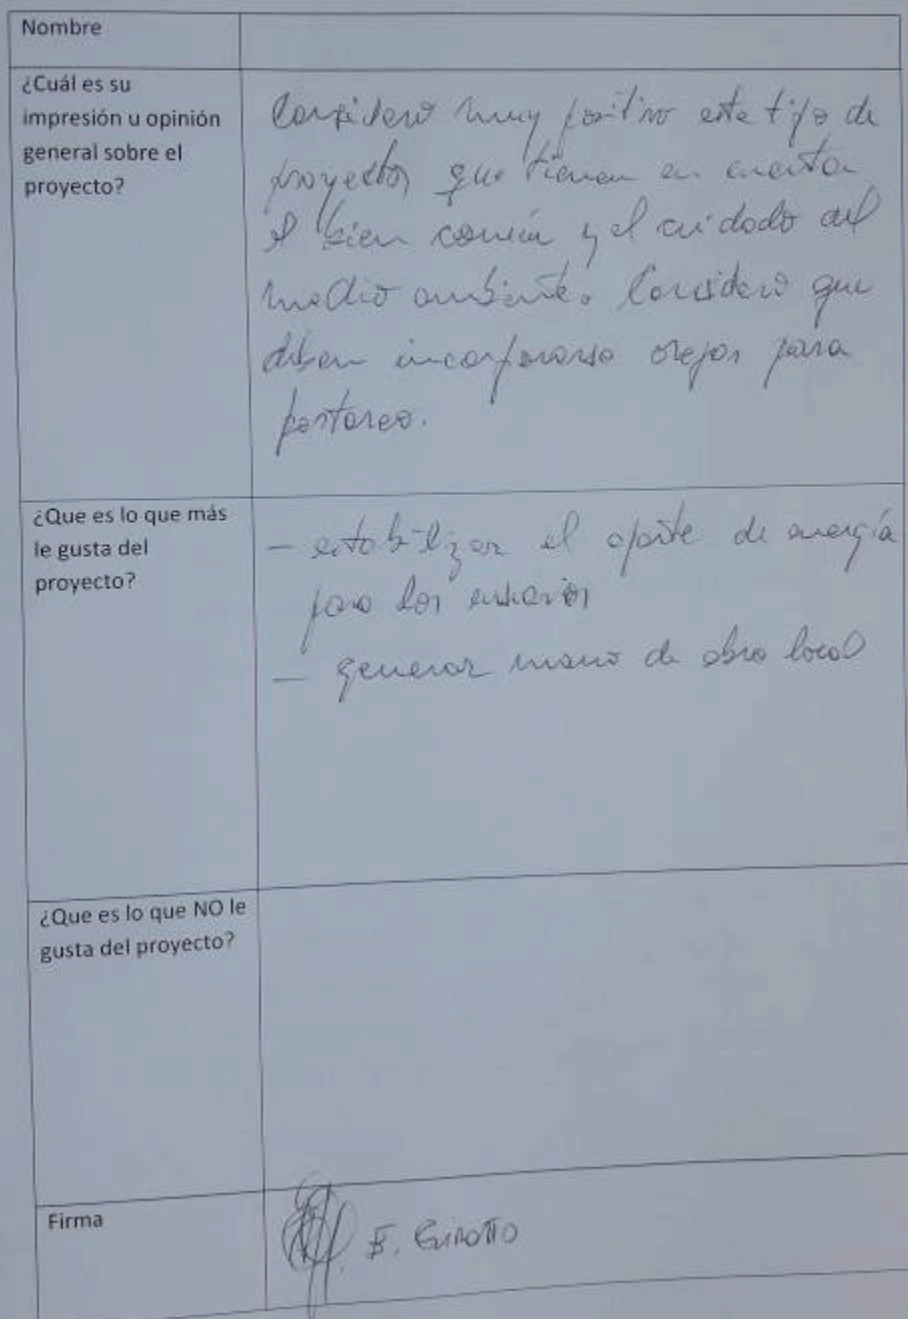 Nombre
¿Cuál es su
impresión u opinión
general sobre el
proyecto?
Considero muy positivo este tipo de
proyectos que tienen en cuenta
el bien común y el cuidado del
medio ambiente. Considero que
deben incorporarse ovejas para
pastoreo.
¿Que es lo que más
le gusta del
proyecto?
- estabilizar el aporte de energía
para los usuarios
- generar mano de obra local
¿Que es lo que NO le
gusta del proyecto?
Firma